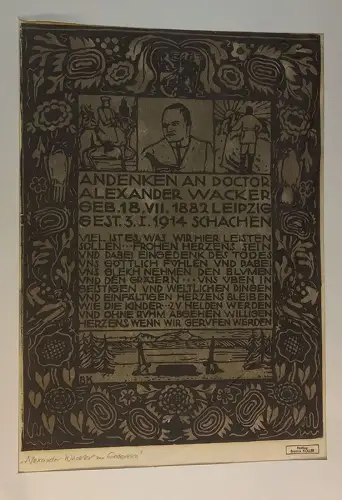 ANDENKEN AN DOCTOR
ALEXANDER WACKER
GEB. 18. VII. 1882 LEIPZIG
GEST. 3. I. 1914 SCHACHEN
VIEL IST ES, WAS WIR HIER LEISTEN
SOLLEN ··· FROHEN HERZENS SEIN
UND DABEI EINGEDENK DES TODES
UNS GÖTTLICH FÜHLEN UND DABEI
UNS GLEICH NEHMEN DEN BLUMEN
UND DEN GRÄSERN ··· UNS ÜBEN IN
GEISTIGEN UND WELTLICHEN DINGEN
UND EINFÄLTIGEN HERZENS BLEIBEN
WIE DIE KINDER · ZU HELDEN WERDEN
UND OHNE RUHM ABGEHEN WILLIGEN
HERZENS, WENN WIR GERUFEN WERDEN
"Alexander Wacker